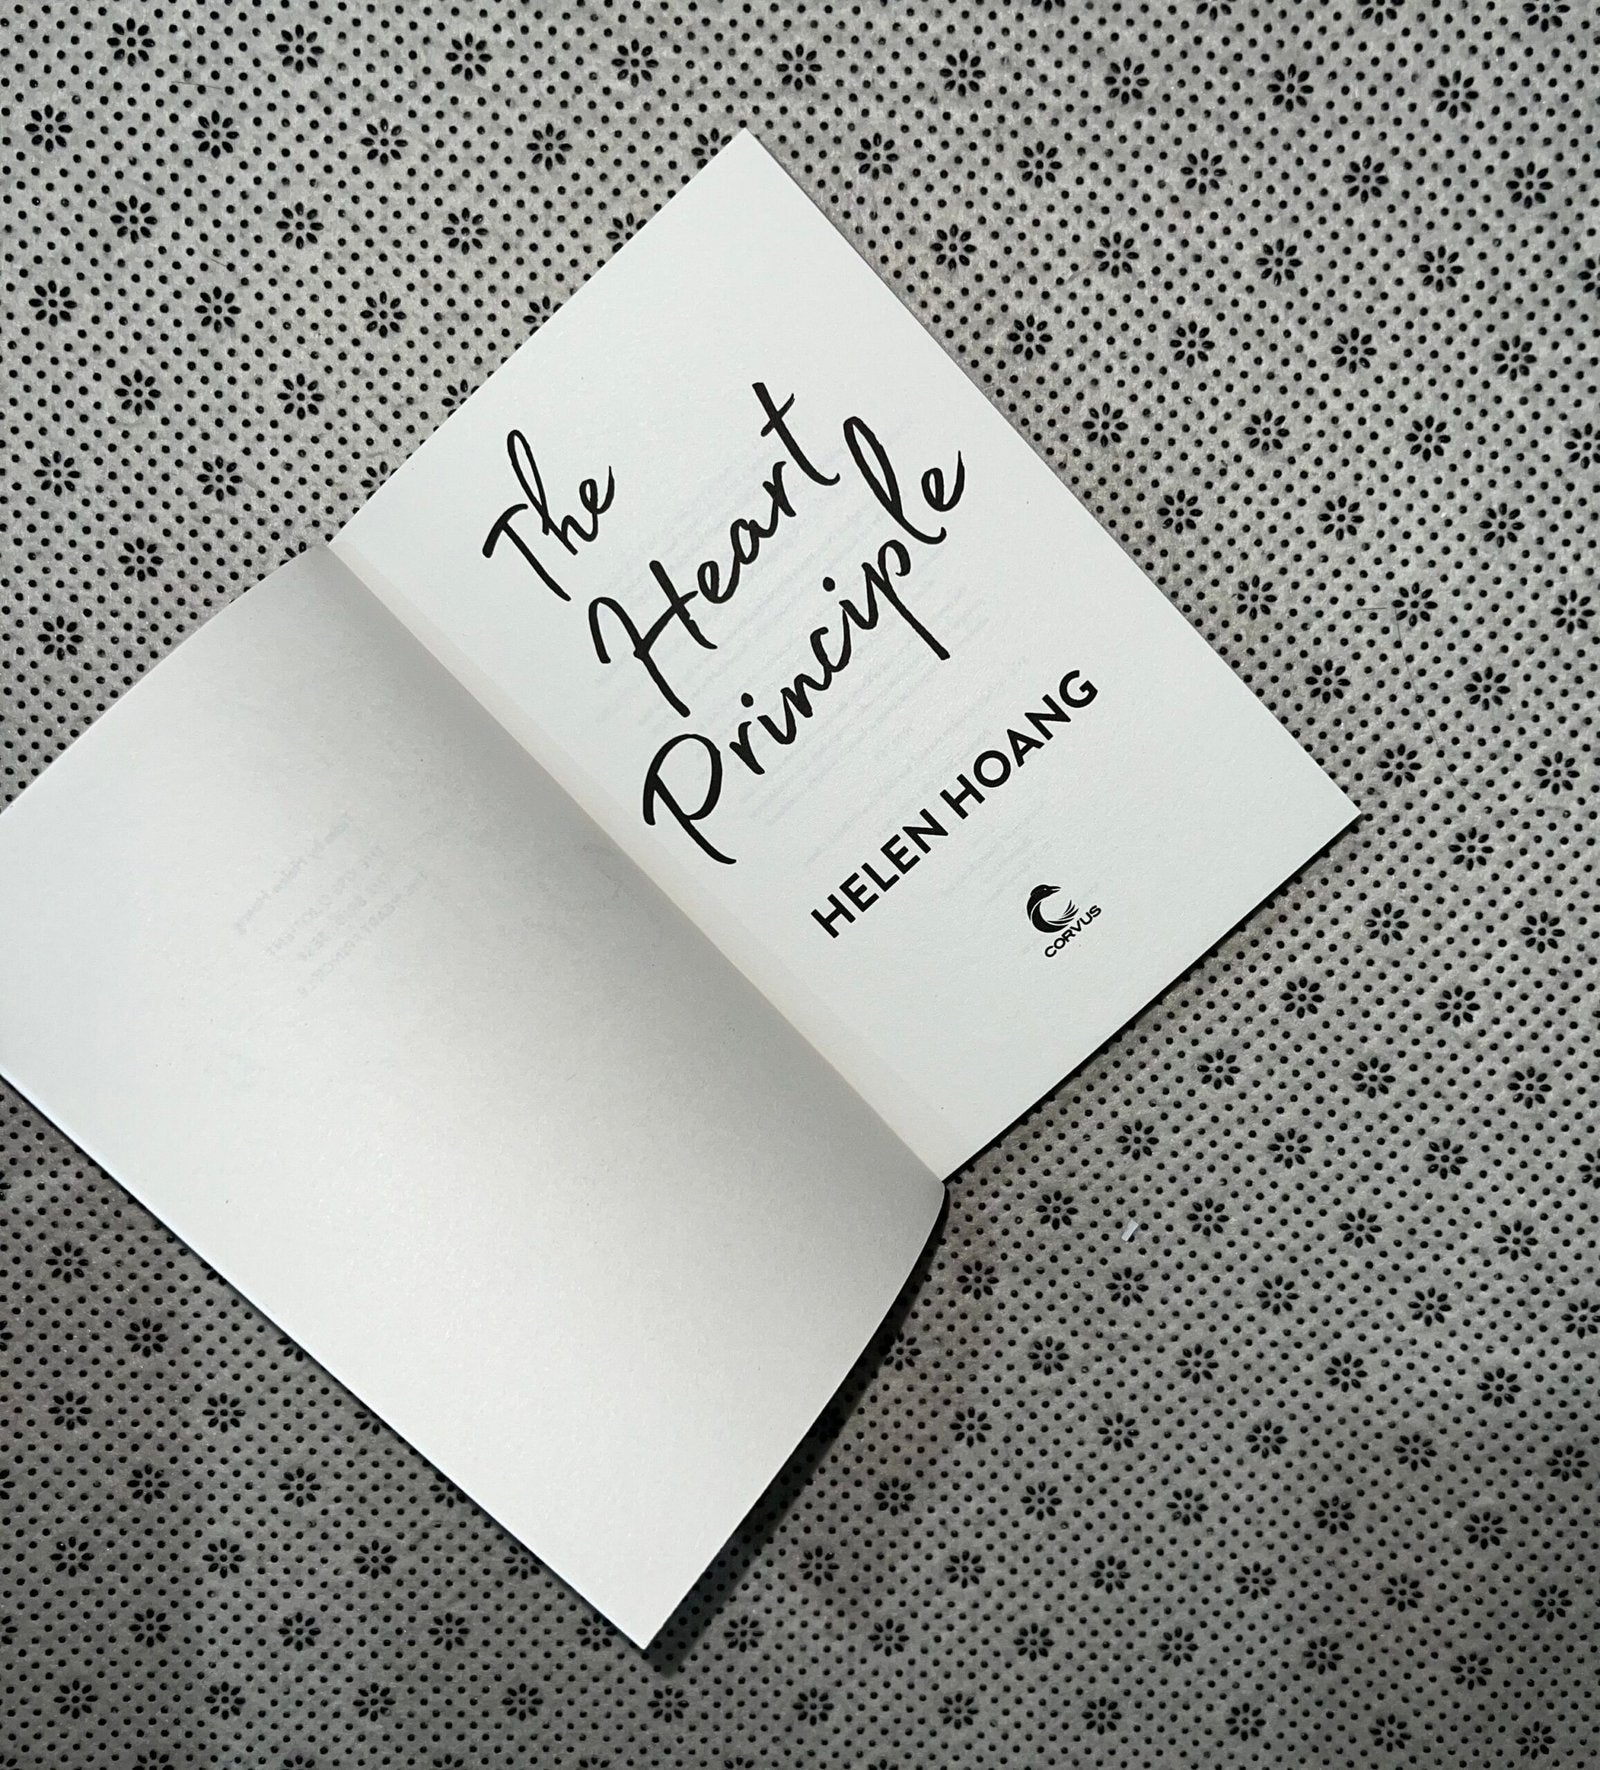 The
Heart
Principle
HELEN HOANG
CORVUS